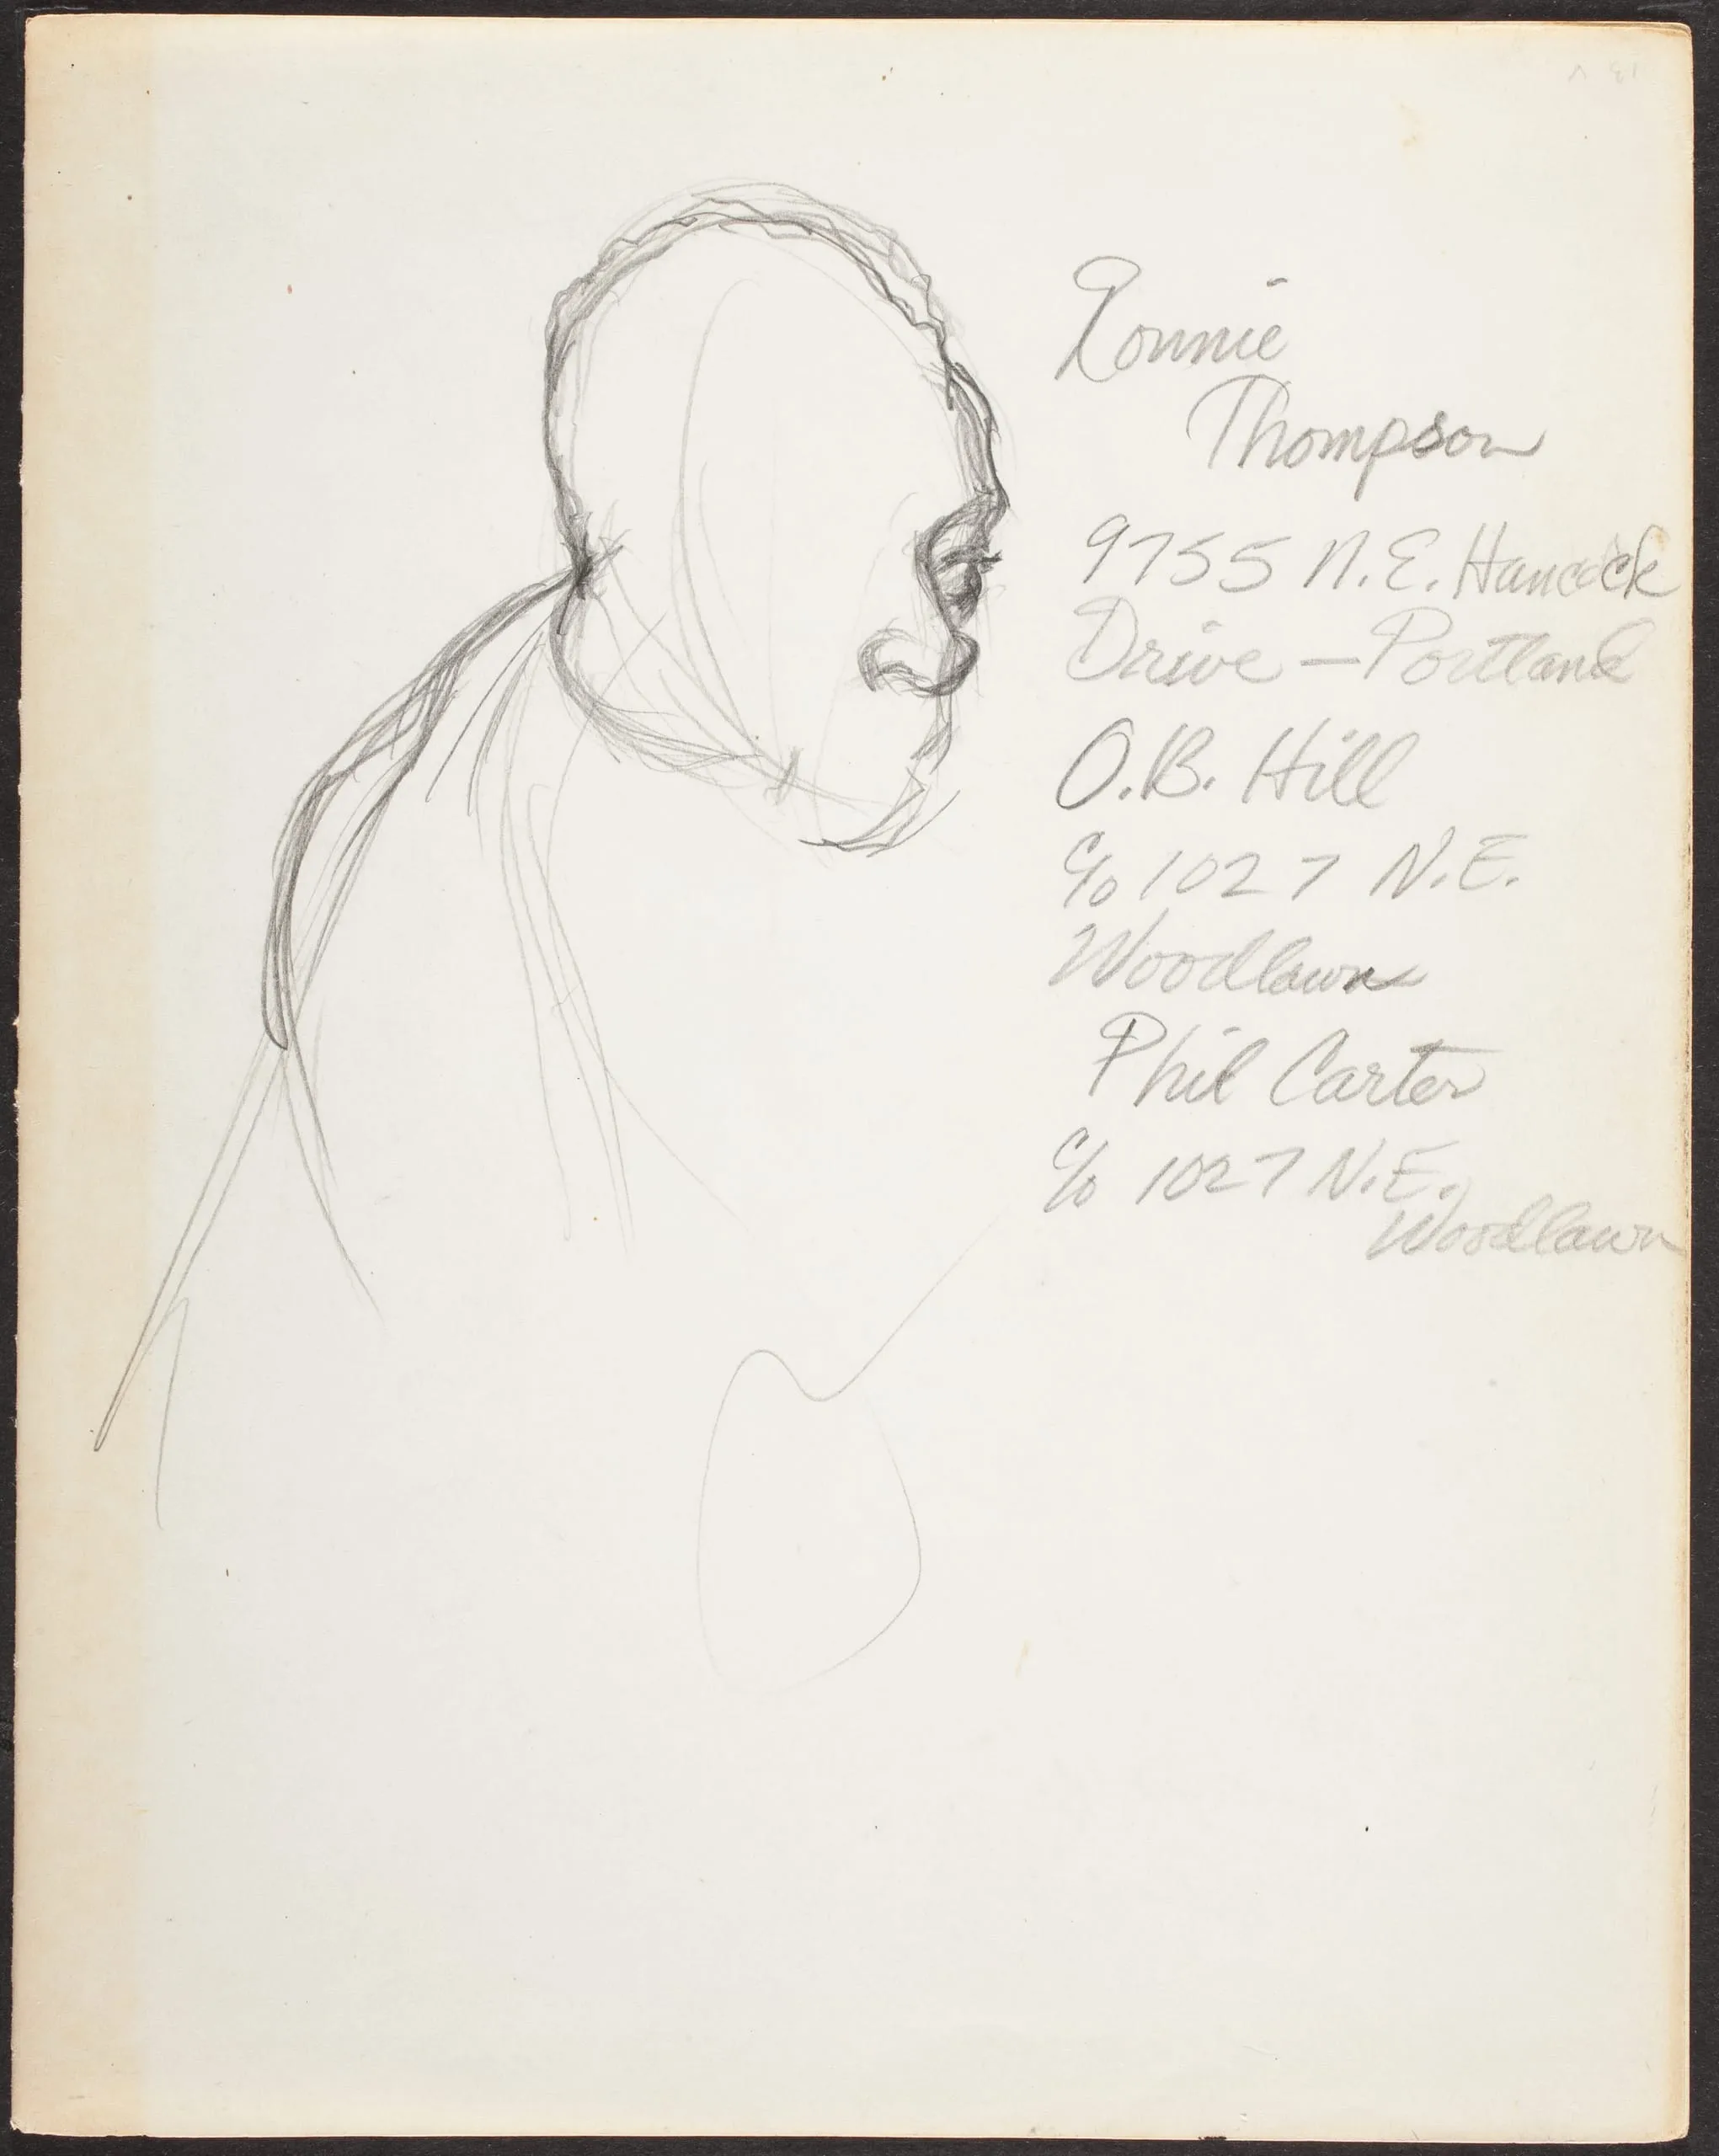 Ronnie
Thompson
9755 N.E. Hancock
Drive — Portland
O.B. Hill
c/o 1027 N.E.
Woodlawn
Phil Carter
c/o 1027 N.E.
Woodlawn